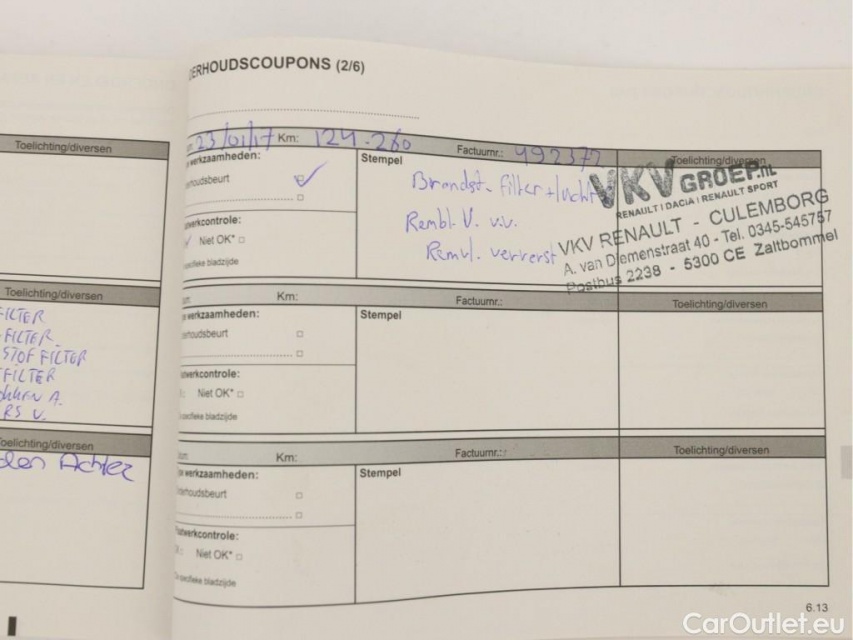 Toelichting/diversen
Toelichting/diversen
FILTER
FILTER
STOF FILTER
FILTER
A.
RS V.
Toelichting/diversen
Achter
ERHOUDSCOUPONS (2/6)
23/01/17 Km: 124.260 Factuurnr.: 492372 Toelichting/diversen
werkzaamheden:
Stempel
erhoudsbeurt
Brandst. filter + lucht
Rembl. V. v.v.
Remvl. ververst
werkcontrole:
Niet OK*
specifieke bladzijde
VKV GROEP.nl
RENAULT | DACIA | RENAULT SPORT
VKV RENAULT - CULEMBORG
A. van Diemenstraat 40 - Tel. 0345-545757
Postbus 2238 - 5300 CE Zaltbommel
Km: Factuurnr.: Toelichting/diversen
werkzaamheden:
Stempel
erhoudsbeurt
werkcontrole:
Niet OK*
specifieke bladzijde
Km: Factuurnr.: Toelichting/diversen
werkzaamheden:
Stempel
erhoudsbeurt
werkcontrole:
Niet OK*
specifieke bladzijde
6.13
CarOutlet.eu